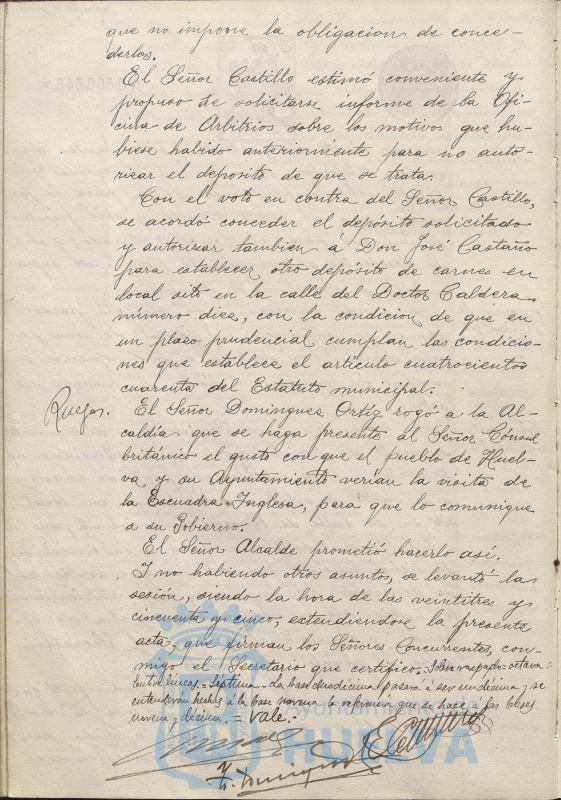 que no impone la obligacion de conce-
derlos.
El Señor Castillo estimó conveniente y
propuso se solicitarse informe de la Ofi-
cina de Arbitrios sobre los motivos que hu-
biese habido anteriormente para no auto-
rizar el deposito de que se trata.
Con el voto en contra del Señor Castillo,
se acordó conceder el depósito solicitado
y autorizar tambien á Don José Castaño
para establecer otro depósito de carnes en
local sito en la calle del Doctor Caldera
número diez, con la condicion de que en
un plazo prudencial cumplan las condicio-
nes que establece el artículo cuatrocientos
cuarenta del Estatuto municipal.
Ruegos.
El Señor Dominguez Ortíz rogó a la Al-
caldía que se haga presente al Señor Cónsul
británico el gusto con que el pueblo de Huel-
va y su Ayuntamiento verían la visita de
la Escuadra Inglesa, para que lo comunique
a su Gobierno.
El Señor Alcalde prometió hacerlo así.
Y no habiendo otros asuntos, se levantó la
sesión, siendo la hora de las veintitres y
cincuenta y cinco, extendiendose la presente
acta, que firman los Señores Concurrentes, con-
migo el Secretario que certifico. Sobre raspado = octava =
Entre líneas = Septima - La base duodécima pasará á ser undécima y se
entenderán hechas á la base novena la referencia que se hace a las bases
novena y décima. = Vale.-
HUELVA